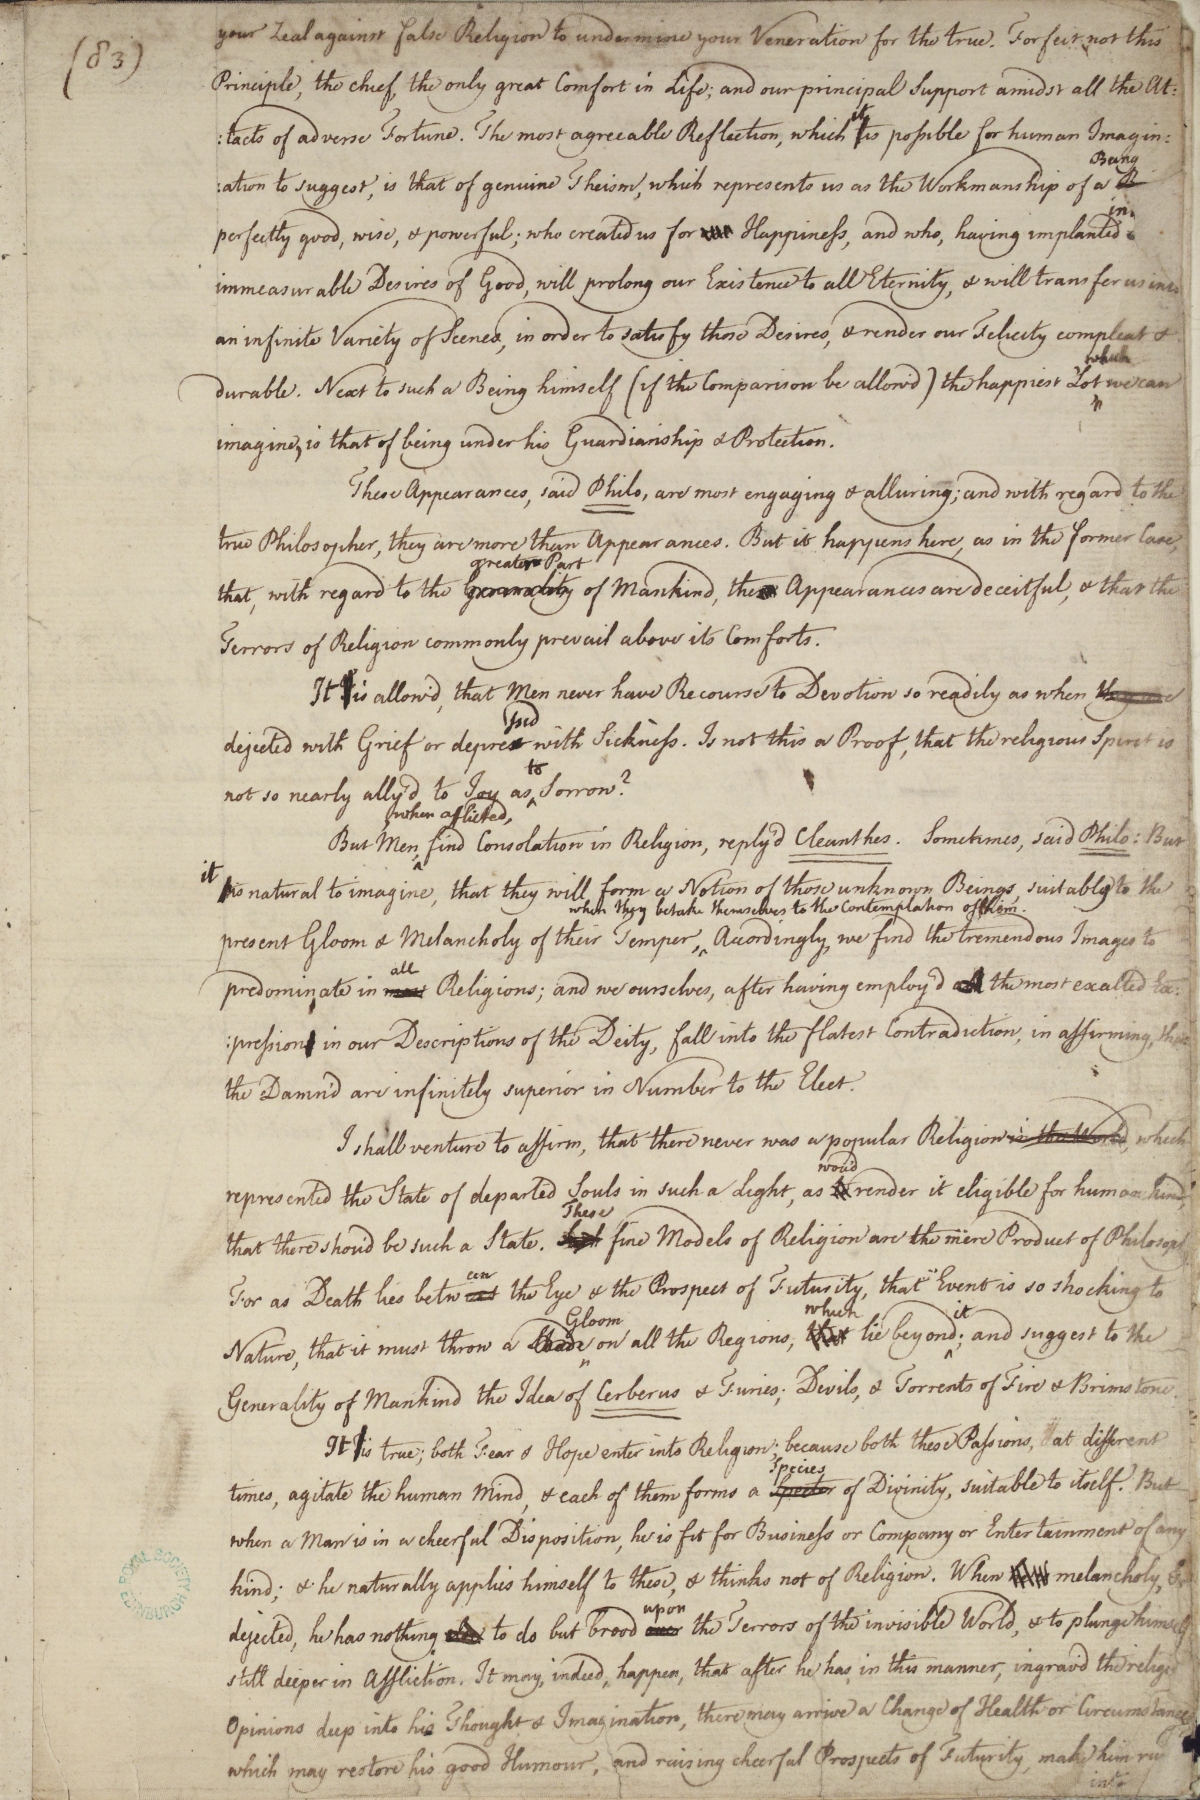 (83)
your Zeal against false Religion to undermine your Veneration for the true. Forfeit not this
Principle, the chief, the only great Comfort in Life; and our principal Support amidst all the At:
:tacts of adverse Fortune. The most agreeable Reflection, which it is possible for human Imagin:
:ation to suggest, is that of genuine Theism, which represents us as the Workmanship of a Being
perfectly good, wise, & powerful; who created us for Happiness, and who, having implanted in
immeasurable Desires of Good, will prolong our Existence to all Eternity, & will transfer us into
an infinite Variety of Scenes, in order to satisfy those Desires, & render our Felicity compleat &
durable. Next to such a Being himself (if the Comparison be allow'd) the happiest Lot which we can
imagine, is that of being under his Guardianship & Protection.
These Appearances, said Philo, are most engaging & alluring; and with regard to the
true Philosopher, they are more than Appearances. But it happens here, as in the former Case,
that, with regard to the greater Part of Mankind, the Appearances are deceitful, & that the
Terrors of Religion commonly prevail above its Comforts.
It is allow'd, that Men never have Recourse to Devotion so readily as when they are
dejected with Grief or deprest with Sickness. Is not this a Proof, that the religious Spirit is
not so nearly ally'd to Joy as to Sorrow?
But Men, when afflicted, find Consolation in Religion, reply'd Cleanthes. Sometimes, said Philo: But
it is natural to imagine, that they will form a Notion of those unknown Beings, suitably to the
present Gloom & Melancholy of their Temper, when they betake themselves to the Contemplation of them. Accordingly, we find the tremendous Images to
predominate in all Religions; and we ourselves, after having employ'd the most exalted Ex:
:pression in our Descriptions of the Deity, fall into the flatest Contradiction, in affirming, that
the Damn'd are infinitely superior in Number to the Elect.
I shall venture to affirm, that there never was a popular Religion in the World which
represented the State of departed Souls in such a Light, as wou'd render it eligible for human kind,
that there shou'd be such a State. These fine Models of Religion are the mere Product of Philosophy
For as Death lies between the Eye & the Prospect of Futurity, that Event is so shocking to
Nature, that it must throw a Gloom on all the Regions, which lie beyond it; and suggest to the
Generality of Mankind the Idea of Cerberus & Furies; Devils, & Torrents of Fire & Brimstone.
It is true; both Fear & Hope enter into Religion; because both these Passions, at different
times, agitate the human Mind, & each of them forms a Species of Divinity, suitable to itself. But
when a Man is in a cheerful Disposition, he is fit for Business or Company or Entertainment of any
kind; & he naturally applies himself to these, & thinks not of Religion. When melancholy, &
dejected, he has nothing to do but brood upon the Terrors of the invisible World, & to plunge himself
still deeper in Affliction. It may, indeed, happen, that after he has, in this manner, ingrav'd the religious
Opinions deep into his Thought & Imagination, there may arrive a Change of Health or Circumstances
which may restore his good Humour, and raising cheerful Prospects of Futurity, make him run
into
ROYAL SOCIETY EDINBURGH